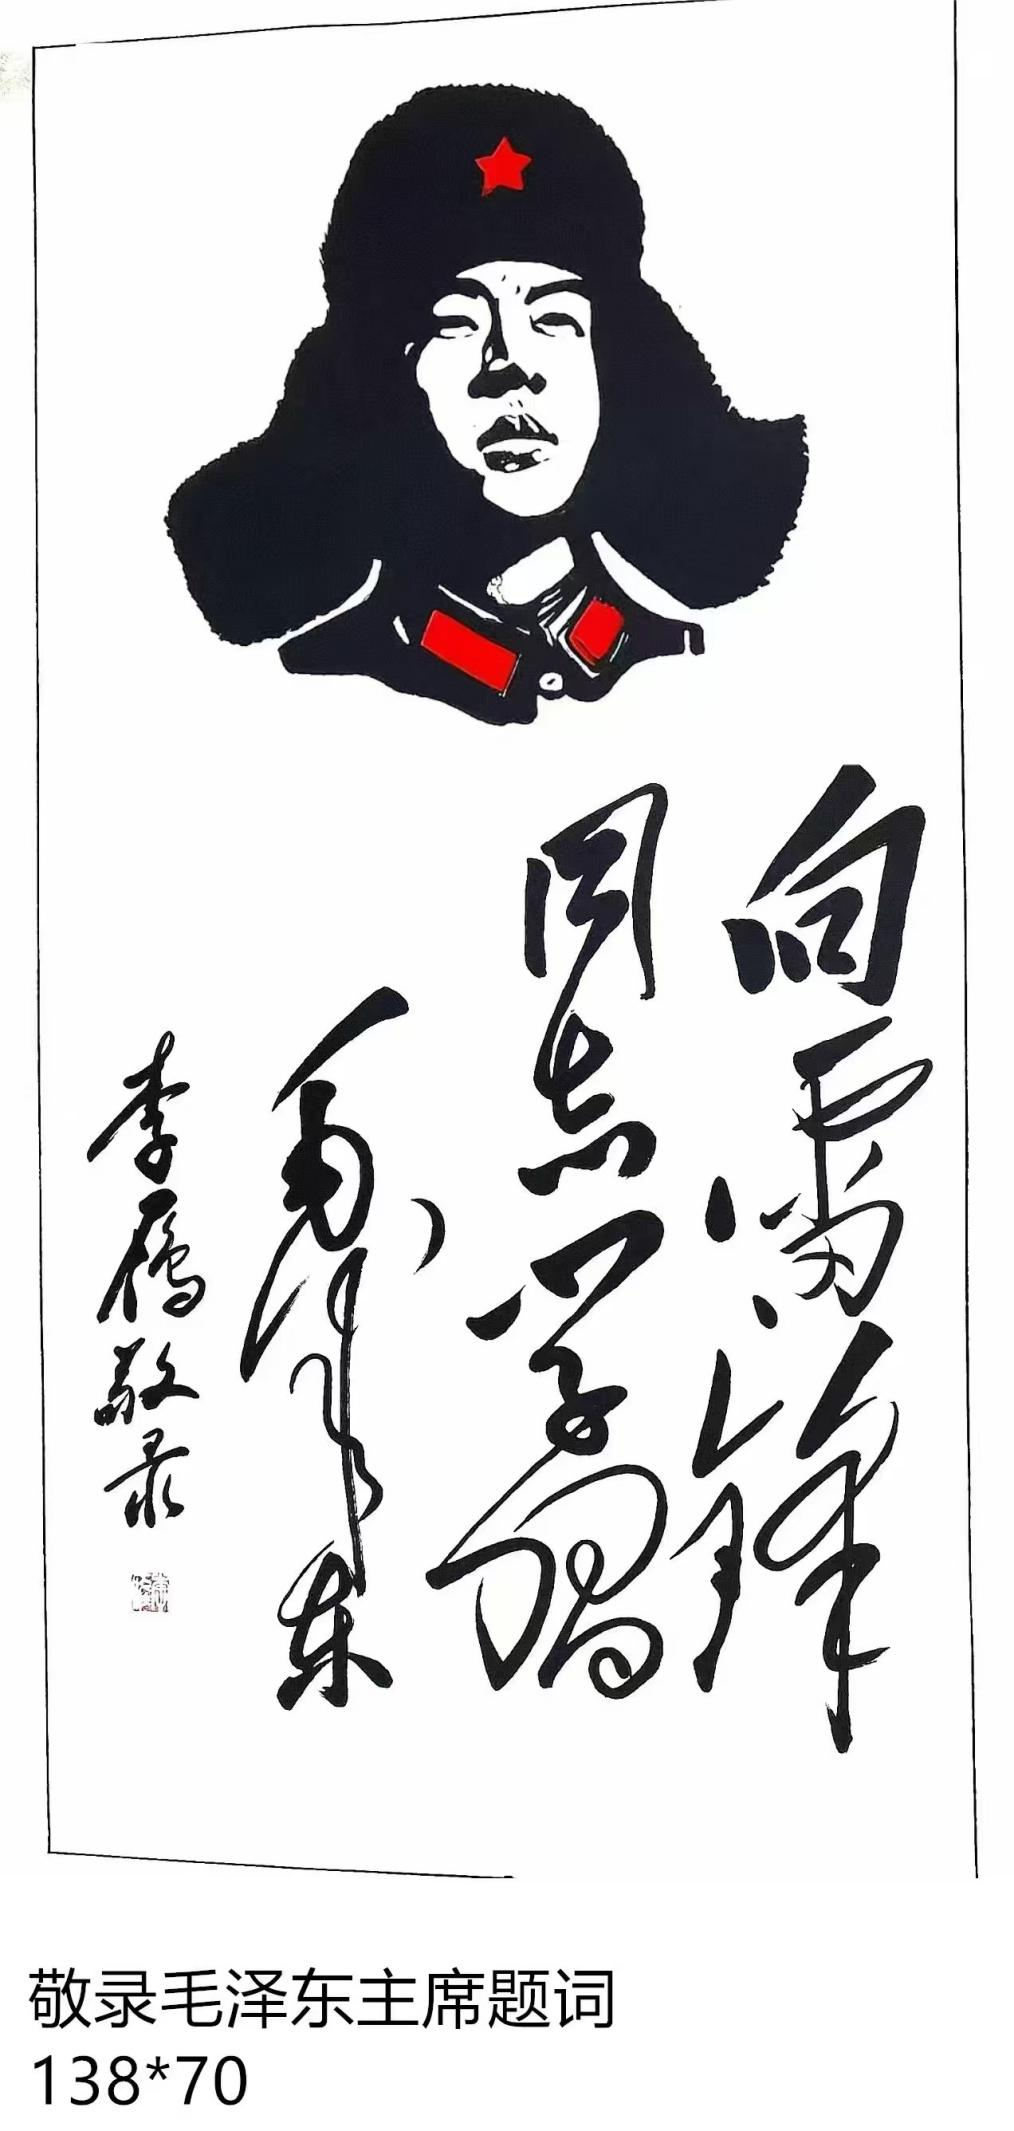 向雷锋
同志学习
毛泽东
李雁敬录
敬录毛泽东主席题词
138*70